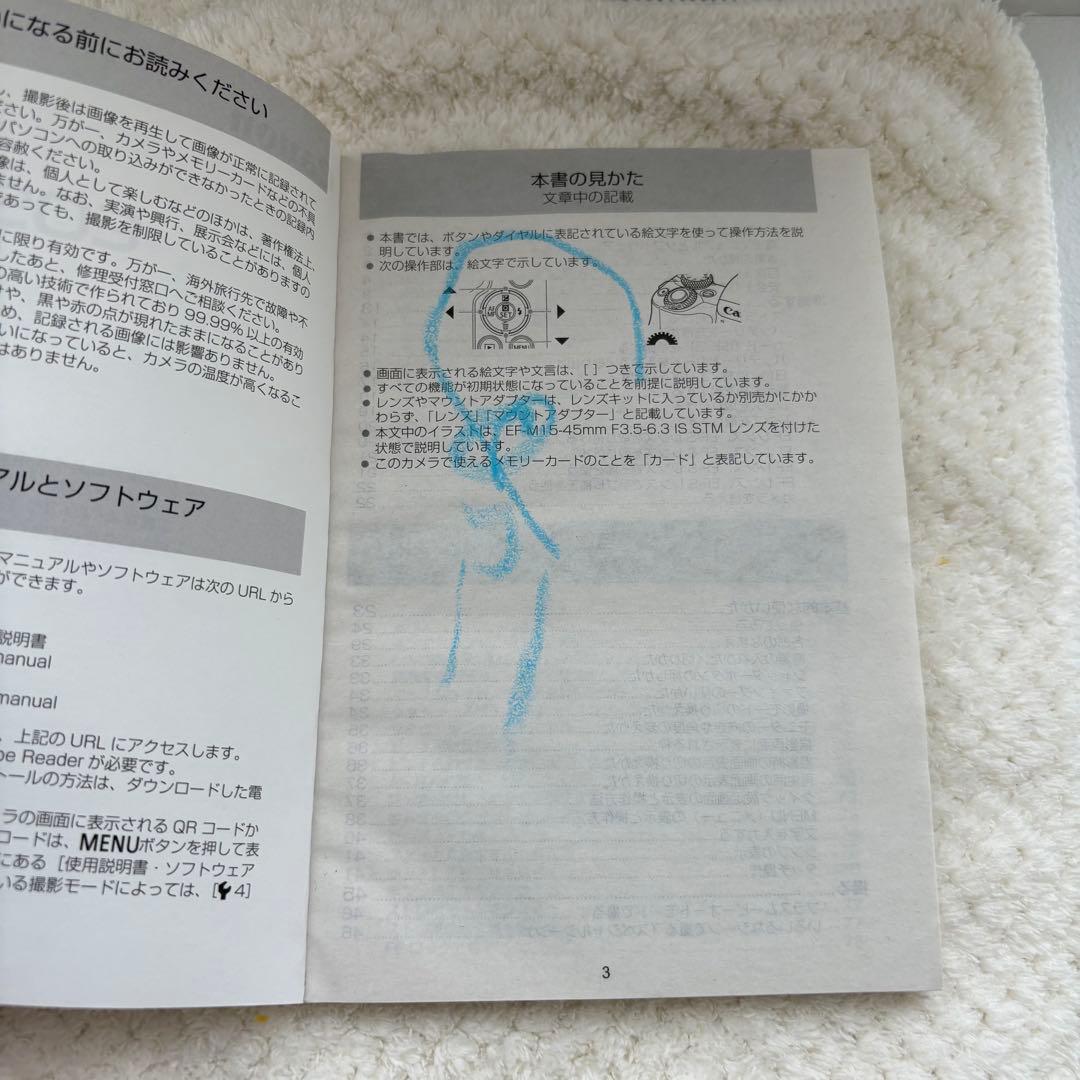 になる前にお読みください
、撮影後は画像を再生して画像が正常に記録されて
ださい。万が一、カメラやメモリーカードなどの不具
パソコンへの取り込みができなかったときの記録内
容赦ください。
像は、個人として楽しむなどのほかは、著作権法上、
ません。なお、実演や興行、展示会などには、個人
であっても、撮影を制限していることがありますの
に限り有効です。万が一、海外旅行先で故障や不
したあと、修理受付窓口へご相談ください。
の高い技術で作られており 99.99% 以上の有効
けや、黒や赤の点が現れたままになることがあり
め、記録される画像には影響ありません。
いになっていると、カメラの温度が高くなるこ
はありません。
アルとソフトウェア
マニュアルやソフトウェアは次の URL から
ができます。
説明書
manual
manual
、上記の URL にアクセスします。
be Reader が必要です。
トールの方法は、ダウンロードした電
ラの画面に表示される QR コードか
コードは、MENUボタンを押して表
にある [使用説明書・ソフトウェア
いる撮影モードによっては、[4]
本書の見かた
文章中の記載
● 本書では、ボタンやダイヤルに表記されている絵文字を使って操作方法を説
明しています。
● 次の操作部は、絵文字で示しています。
AF
MF
SET
MENU
Ca
● 画面に表示される絵文字や文言は、[ ] つきで示しています。
● すべての機能が初期状態になっていることを前提に説明しています。
● レンズやマウントアダプターは、レンズキットに入っているか別売かにかか
わらず、「レンズ」「マウントアダプター」と記載しています。
● 本文中のイラストは、EF-M15-45mm F3.5-6.3 IS STM レンズを付けた
状態で説明しています。
● このカメラで使えるメモリーカードのことを「カード」と表記しています。
3